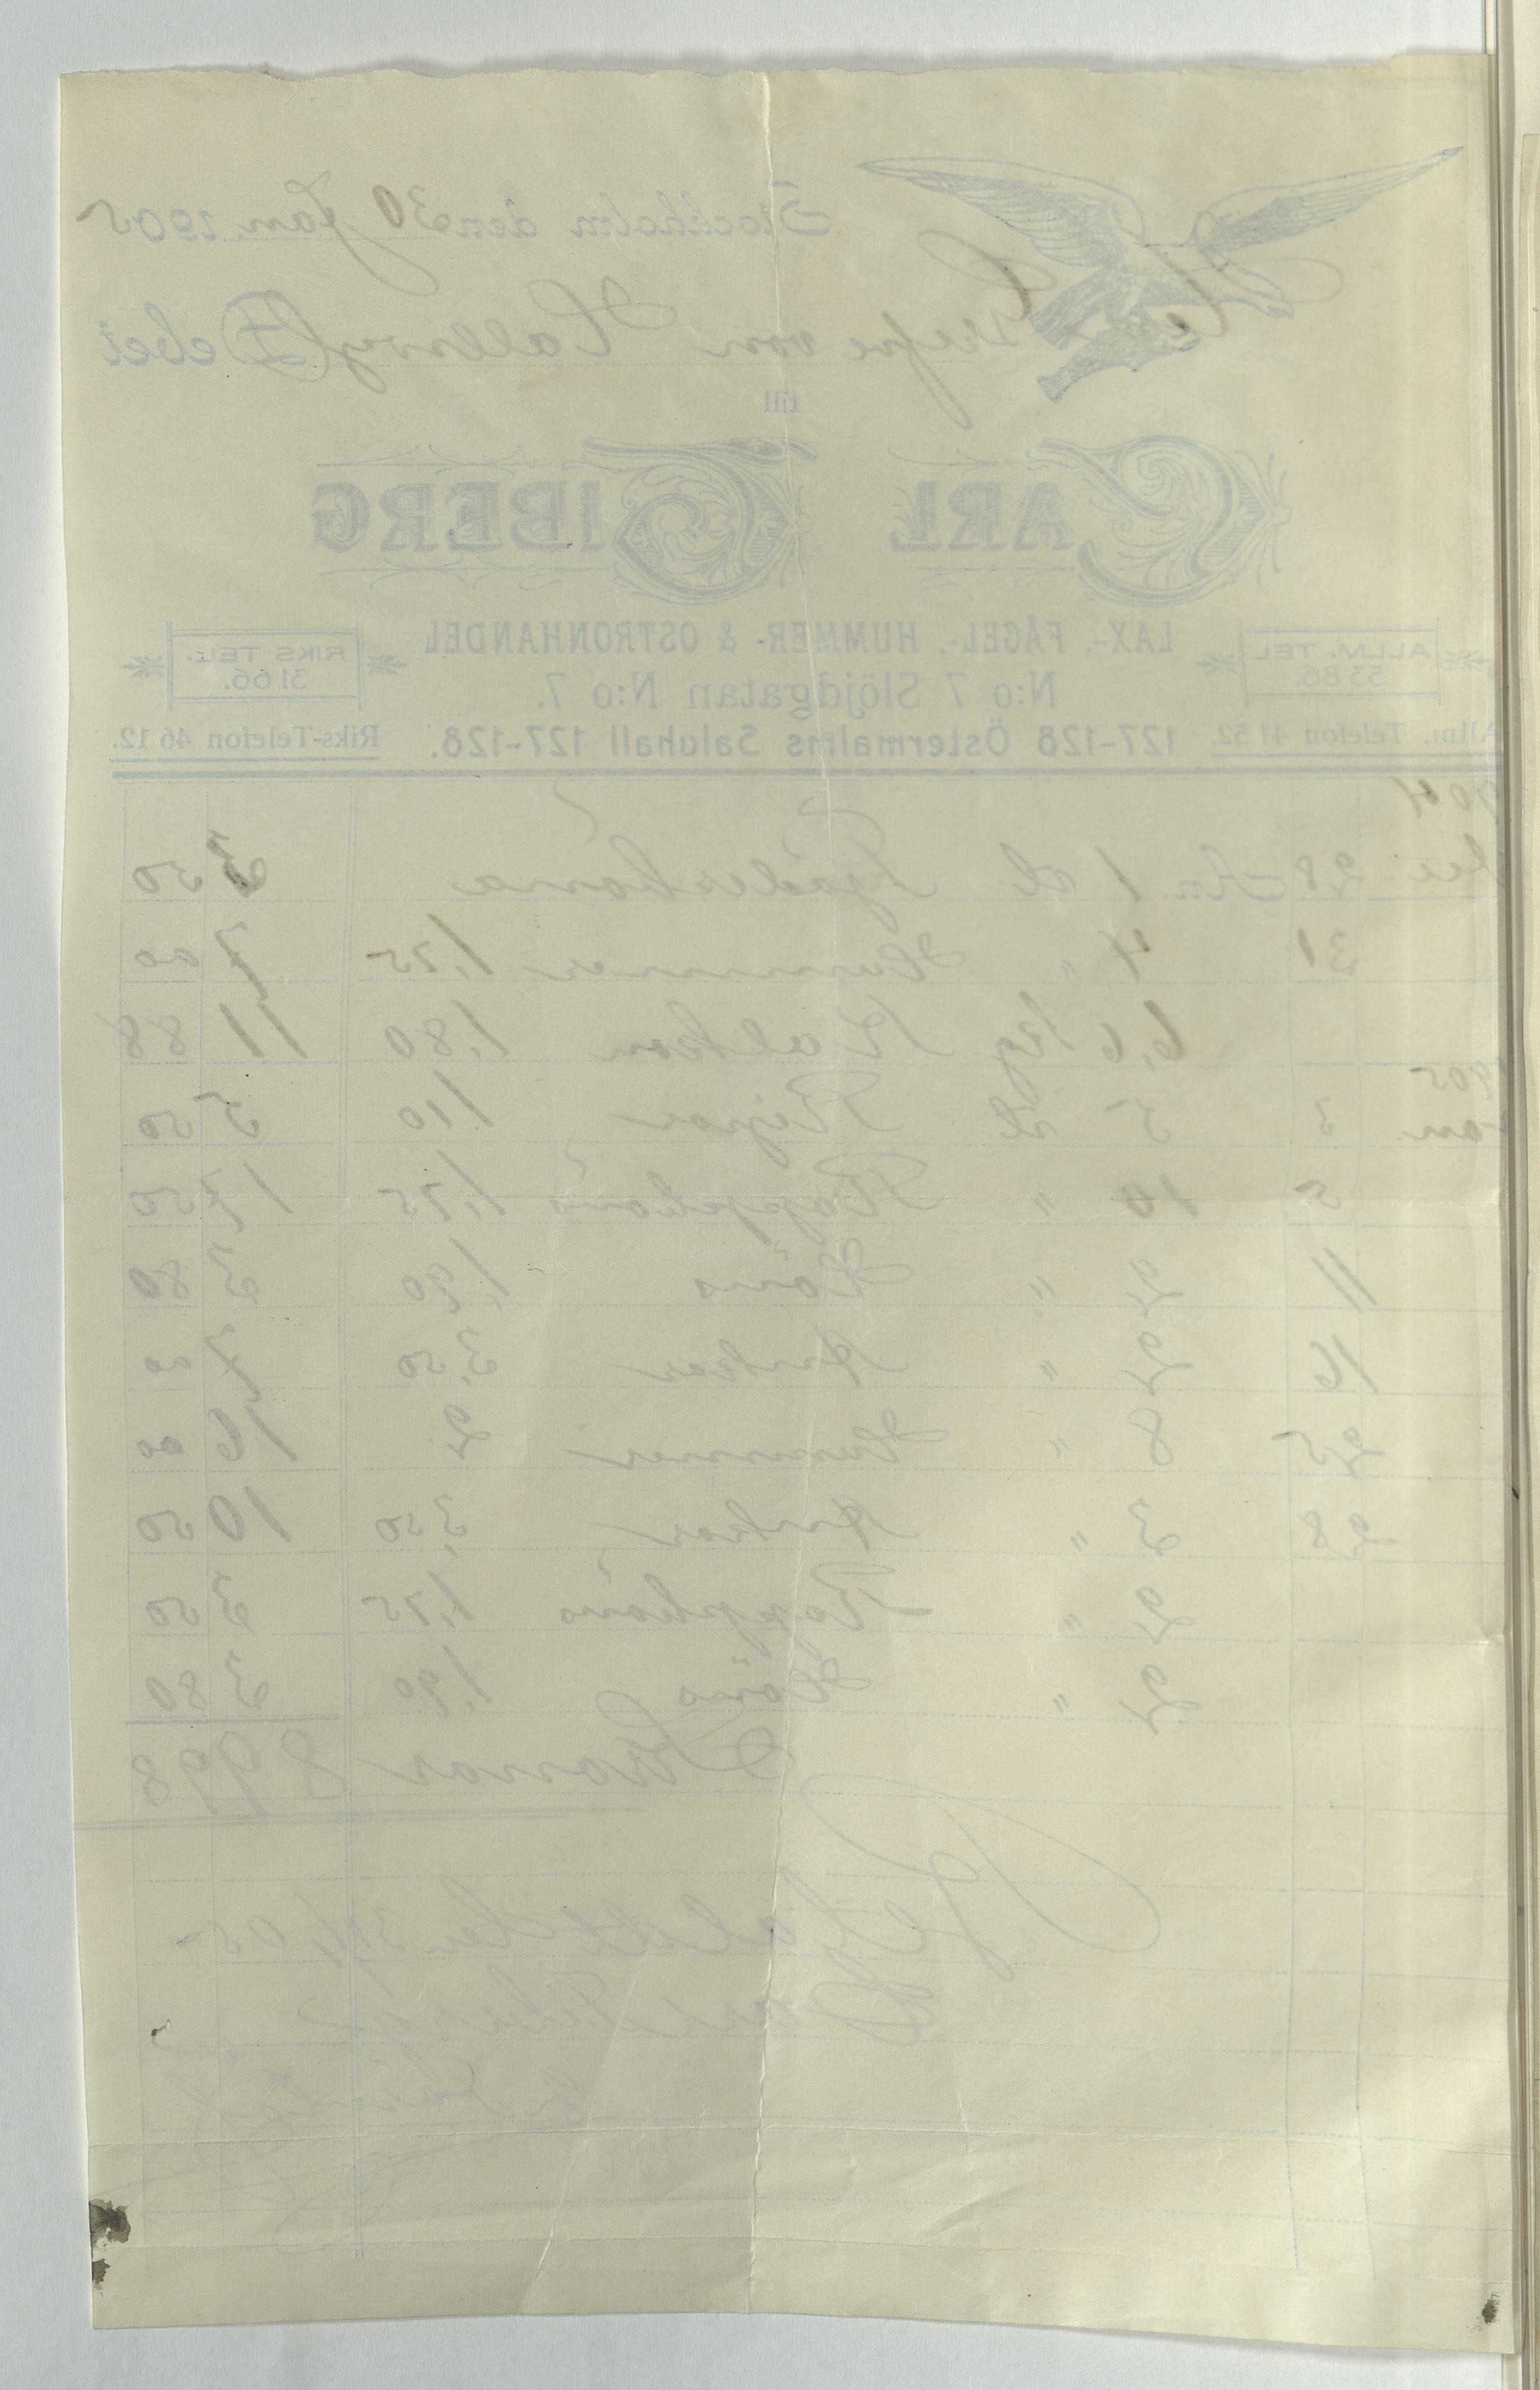 Stockholm den 30 Jan. 1905
von Hallwyl Debet
till
CARL TIBERG
LAX-, FÅGEL-, HUMMER- & OSTRONHANDEL
ALLM. TEL. 53 86.
RIKS TEL. 31 66.
N:o 7 Slöjdgatan N:o 7.
Allm. Telefon 41 52. 127-128 Östermalms Saluhall 127-128. Riks-Telefon 46 12.
1904
Dec. 28 An 1 st Tjäderhöna 3 50
31 4 " Hummer 1,75 7 00
6,6 kg Kalkon 1,80 11 88
1905
Jan. 3 5 st Ripor 1,10 5 50
5 10 " Rapphöns 1,75 17 50
11 2 " Höns 1,90 3 80
16 2 " Ankor 3,50 7 00
25 8 " Hummer 2 16 00
28 3 " Ankor 3,50 10 50
2 " Rapphöns 1,75 3 50
2 " Höns 1,90 3 80
Kronor 89 98
Betalt den 05
Carl Tiberg